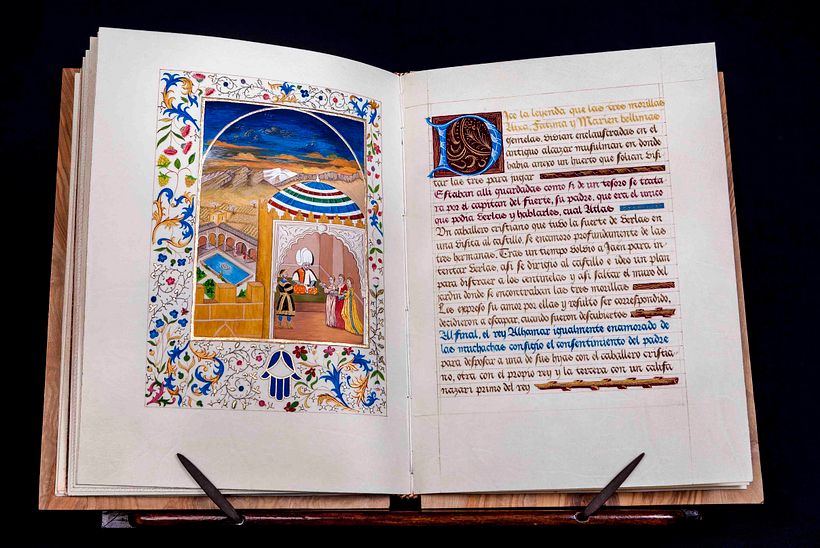 Dice la leyenda que las tres morillas
Aixa, Fatima y Marien bellimas
gemelas, vivian enclaustradas en el
antiguo alcazar musulman en donde
habia anexo un huerto que solian visi
tar las tres para jugar
Estaban alli guardadas como si de un tesoro se trata
ra por el capitan del fuerte, su padre, que era el unico
que podia verlas y hablarles, cual Atilas
Un caballero cristiano que tubo la suerte de verlas en
una visita al castillo, se enamoro profundamente de las
tres hermanas. Tras un tiempo bolvio a Jaén para in
tentar verlas, asi se dirigio al castillo e ideo un plan
para distraer a los centinelas y asi saltar el muro del
jardin donde se encontraban las tres morillas
Les expreso su amor por ellas y resulto ser correspondido,
decidieron a escapar, cuando fueron descubiertos
Al final, el rey Alhamar igualmente enamorado de
las muchachas consigio el consentimiento del padre
para desposar a una de sus hijas con el caballero cristia-
no, otra con el propio rey y la tercera con un califa
nazari primo del rey